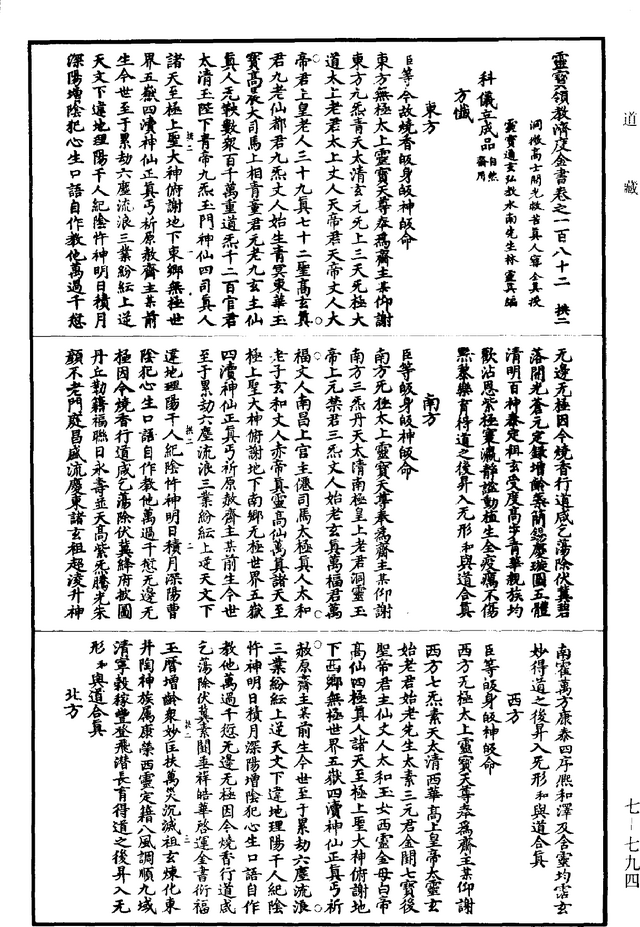 道藏
靈寶領教濟度金書卷之一百八十二 拱二
洞微高士開光救苦真人甯全真授
靈寶通玄弘教水南先生林靈真編
科儀立成品 自然齋用
方懺
東方
臣等今故燒香皈身皈神皈命
東方無極太上靈寶天尊奉為齋主某仰謝
東方九炁青天太清玄元无上三天无極大
道太上老君太上丈人天帝君天帝丈人大
帝君上皇老人三十九真七十二聖高玄真
君九老仙都君九炁丈人始生青冥東華玉
寶高晨大司馬上相青童君元老九玄主仙
真人无鞅數眾百千萬重道炁千二百官君
太清玉陛下青帝九炁玉門神仙四司真人
諸天至極上聖大神俯謝地下東鄉無極世
界五嶽四瀆神仙正真丐祈原赦齋主某前
生今世至于累劫六塵流浪三業紛紜上逆
天文下違地理陽干人紀陰忤神明日積月
深陽增陰犯心生口語自作教他萬過千愆
无邊无極因今燒香行道咸乞蕩除伏冀碧
落開光蒼元定錄增齡築簡錫慶璇圖五體
清明百神泰定祖玄受度高步青華親族均
歡沾恩紫極寰瀛靜謐動植生全疫癘不傷
黔黎樂育得道之後昇入无形和與道合真
南方
臣等皈身皈神皈命
南方无極太上靈寶天尊奉為齋主某仰謝
南方三炁丹天太清南極皇上老君洞靈玉
帝上元禁君三炁丈人始老玄真萬福君萬
福丈人南昌上官主僊司馬太極真人太和
老子玄和丈人赤帝真靈高仙萬真諸天至
極上聖大神俯謝地下南鄉无極世界五嶽
四瀆神仙正真丐祈原赦齋主某前生今世
至于累劫六塵流浪三業紛紜上逆天文下
違地理陽干人紀陰忤神明日積月深陽曹
陰犯心生口語自作教他萬過千愆无邊无
極因今燒香行道咸乞蕩除伏冀絳府披圖
丹丘勒籍福聯日永壽並天高紫炁騰光朱
顏不老門庭昌盛流慶東諸玄祖超淩升神
南霍萬方康泰四序熙和澤及含靈均霑玄
妙得道之後昇入无形和與道合真
西方
臣等皈身皈神皈命
西方无極太上靈寶天尊奉為齋主某仰謝
西方七炁素天太清西華高上皇帝太靈玄
始老君始老先生太素三元君金闕七寶後
聖帝君主仙丈人太和玉女西靈金母白帝
高仙四極真人諸天至極上聖大神俯謝地
下西鄉無極世界五嶽四瀆神仙正真丐祈
赦原齋主某前生今世至于累劫六塵流浪
三業紛紜上逆天文下違地理陽干人紀陰
忤神明日積月深陽增陰犯心生口語自作
教他萬過千愆无邊无極因今燒香行道咸
乞蕩除伏冀素闕垂祥皓華啓運金書衍福
玉曆增齡衆妙匡扶萬災沉滅祖玄煉化東
井陶神族属康榮西靈定籍八風調順九域
清寧穀稼豐登飛潛長育得道之後昇入无
形和與道合真
北方
七—七九四